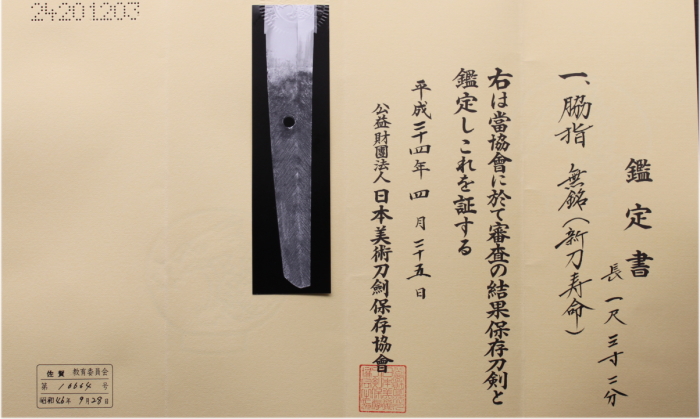 鑑定書
一、脇指 無銘(新刀寿命)
長 一尺三寸二分
右は當協會に於て審査の結果保存刀剣と
鑑定しこれを証する
平成二十四年四月二十五日
公益財團法人 日本美術刀劍保存協會
24201203
佐賀 教育委員会
第 10664 号
昭和46年9月28日